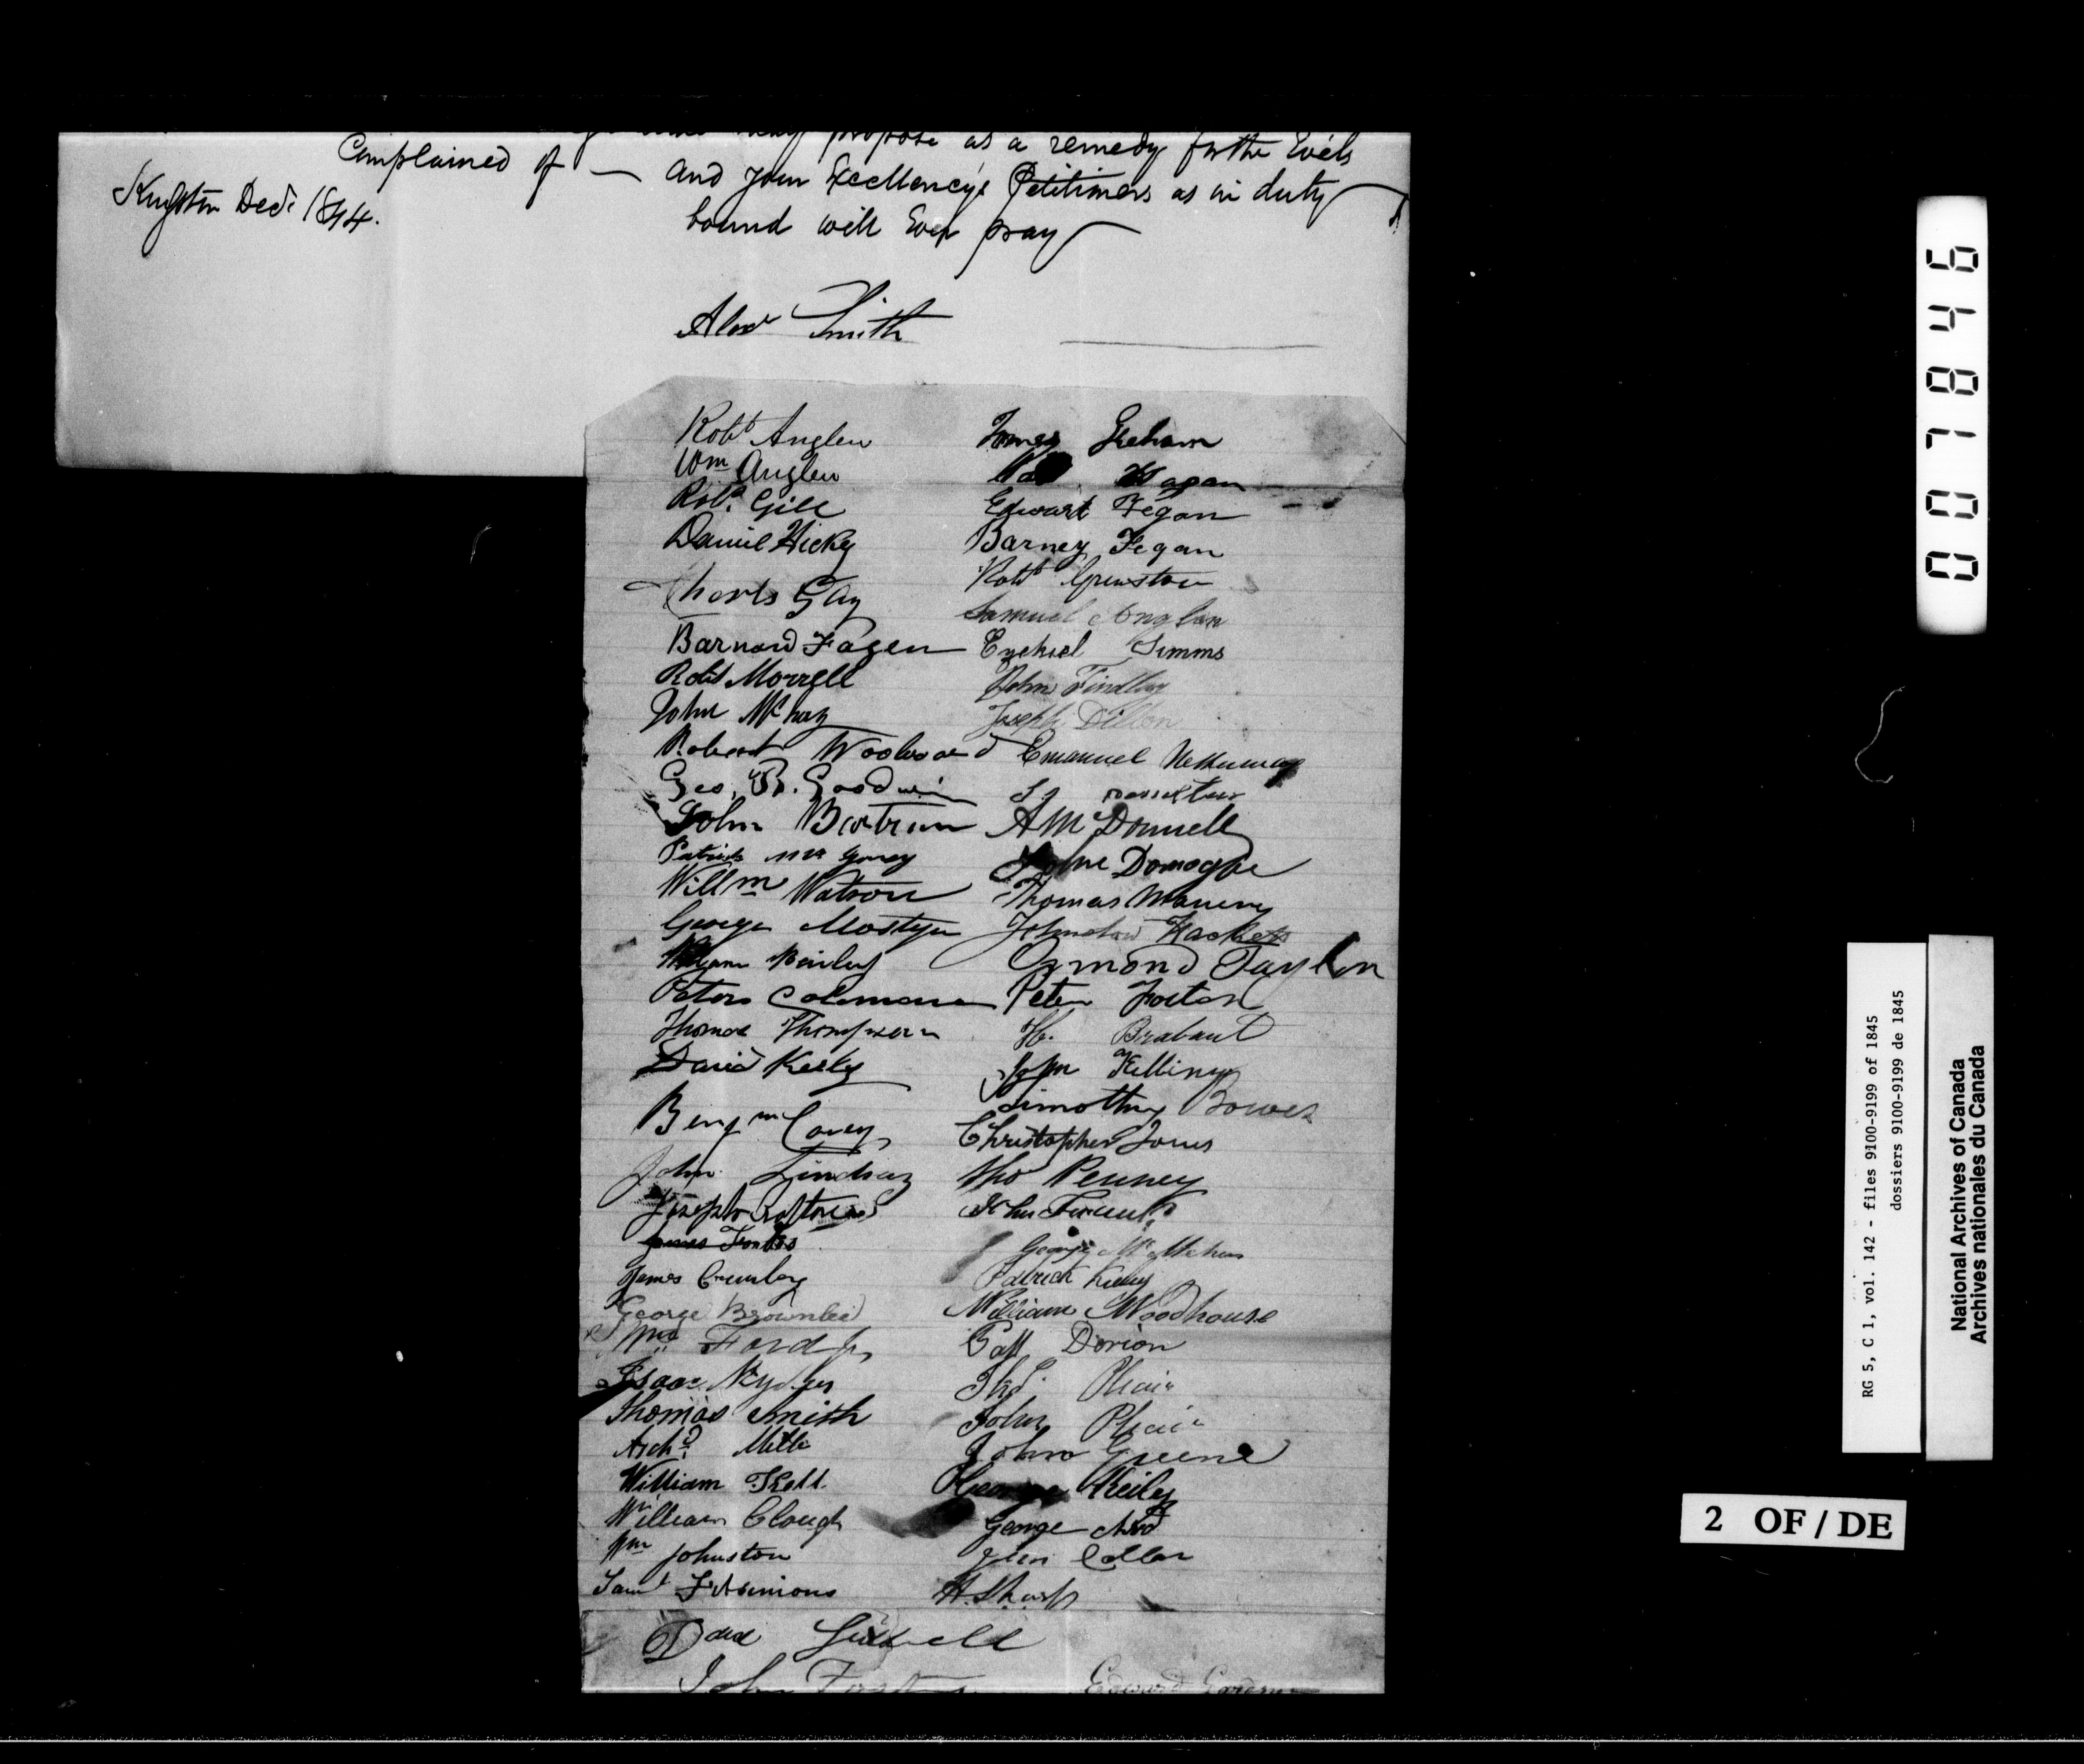 propose as a remedy for the Evils
Complained of — and your Excellency's Petitioners as in duty
bound will Ever pray
Kingston Decr 1844.
Alexr Smith
Robt Anglen
Wm Anglen
Robt. Gill
Daniel Hicky
Charls Gay
Barnard Fagen
Robt Morrell
John
Robert Woolword
Geo. B. Goodwin
John Bartrum
Patrick
Willm Watson
George Mostyn
Peter Coleman
Thomas Thompson
David Kelly
Benjmn Corey
John Lindsay
Joseph
James Forbes
James Crumley
George Brownlee
Wm Ford Jr
Isaac
Thomas Smith
Archd. Mills
William Skell
William Clough
Wm Johnston
Saml Fitsimions
David
John Foster
James Greham
Hagan
Edwart Fegan
Barney Fegan
Robt Grimston
Samuel Anglan
Ezekiel Simms
John Findlay
Joseph Dillon
Emanuel
A McDonnell
John Donoghe
Thomas
Johnston Hackett
Ormond Taylor
Peter
H. Brabant
John Killing
Timothy Bowes
Christopher Jones
Tho Penney
John
George McMahon
Patrick Kelly
William Woodhouse
Patt Dorion
Thos.
John
John Greene
George Keiley
George
Collar
H. Sharp
Edward
007846
RG 5, C 1, vol. 142 - files 9100-9199 of 1845
dossiers 9100-9199 de 1845
National Archives of Canada
Archives nationales du Canada
2 OF / DE